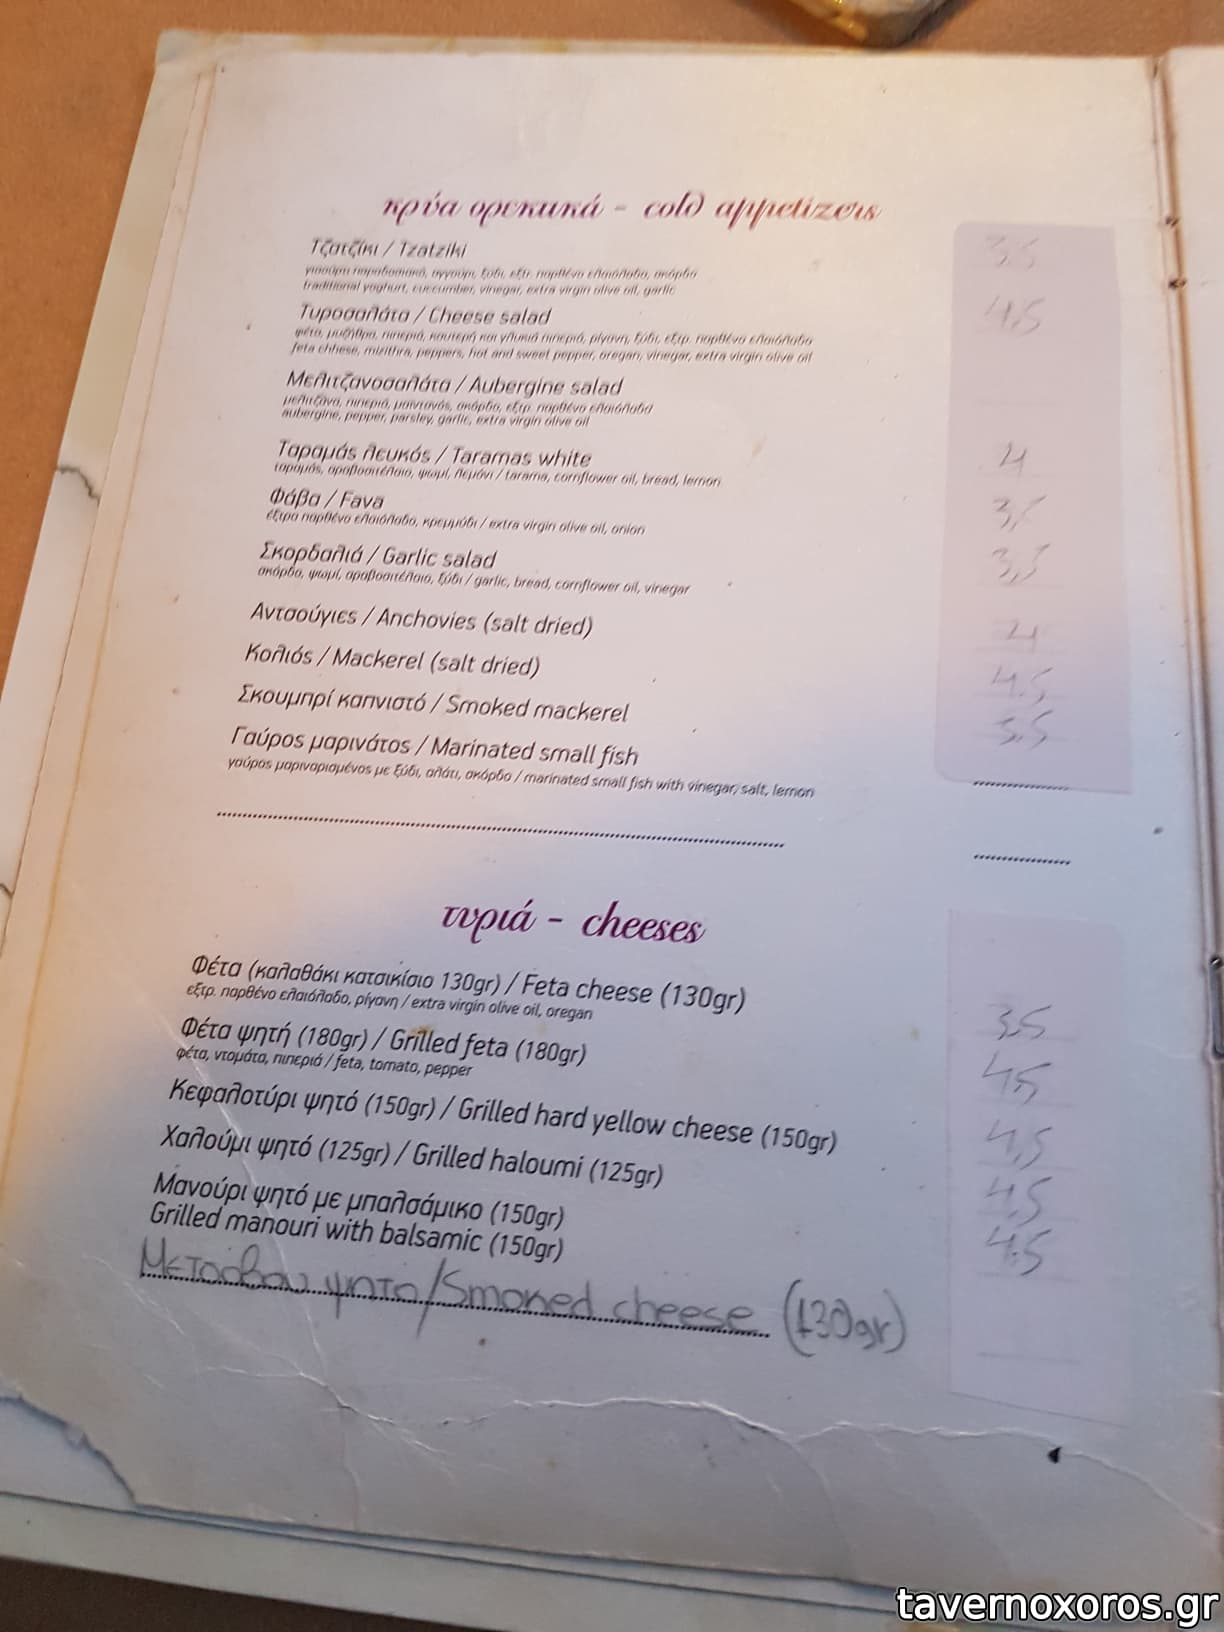 κρύα ορεκτικά - cold appetizers
Τζατζίκι / Tzatziki
3,5
γιαούρτι παραδοσιακό, αγγούρι, ξύδι, εξτρ. παρθένο ελαιόλαδο, σκόρδο
traditional yoghurt, cuccumber, vinegar, extra virgin olive oil, garlic
Τυροσαλάτα / Cheese salad
4,5
φέτα, μυζήθρα, πιπεριά, καυτερή και γλυκιά πιπεριά, ρίγανη, ξύδι, εξτρ. παρθένο ελαιόλαδο
feta chhese, mizithra, peppers, hot and sweet pepper, oregan, vinegar, extra virgin olive oil
Μελιτζανοσαλάτα / Aubergine salad
μελιτζάνα, πιπεριά, μαϊντανός, σκόρδο, εξτρ. παρθένο ελαιόλαδο
aubergine, pepper, parsley, garlic, extra virgin olive oil
Ταραμάς λευκός / Taramas white
4
ταραμάς, αραβοσιτέλαιο, ψωμί, λεμόνι / tarama, cornflower oil, bread, lemon
Φάβα / Fava
3,5
έξτρα παρθένο ελαιόλαδο, κρεμμύδι / extra virgin olive oil, onion
Σκορδαλιά / Garlic salad
σκόρδο, ψωμί, αραβοσιτέλαιο, ξύδι / garlic, bread, cornflower oil, vinegar
Αντσούγιες / Anchovies (salt dried)
4
Κολιός / Mackerel (salt dried)
4.5
Σκουμπρί καπνιστό / Smoked mackerel
5.5
Γαύρος μαρινάτος / Marinated small fish
γαύρος μαριναρισμένος με ξύδι, αλάτι, σκόρδο / marinated small fish with vinegar, salt, lemon
τυριά - cheeses
Φέτα (καλαθάκι κατσικίσιο 130gr) / Feta cheese (130gr)
3.5
εξτρ. παρθένο ελαιόλαδο, ρίγανη / extra virgin olive oil, oregan
Φέτα ψητή (180gr) / Grilled feta (180gr)
4,5
φέτα, ντομάτα, πιπεριά / feta, tomato, pepper
Κεφαλοτύρι ψητό (150gr) / Grilled hard yellow cheese (150gr)
4,5
Χαλούμι ψητό (125gr) / Grilled haloumi (125gr)
4,5
Μανούρι ψητό με μπαλσάμικο (150gr)
4.5
Grilled manouri with balsamic (150gr)
Μετσοβου ψητο/Smoked cheese (130gr)
tavernoxoros.gr